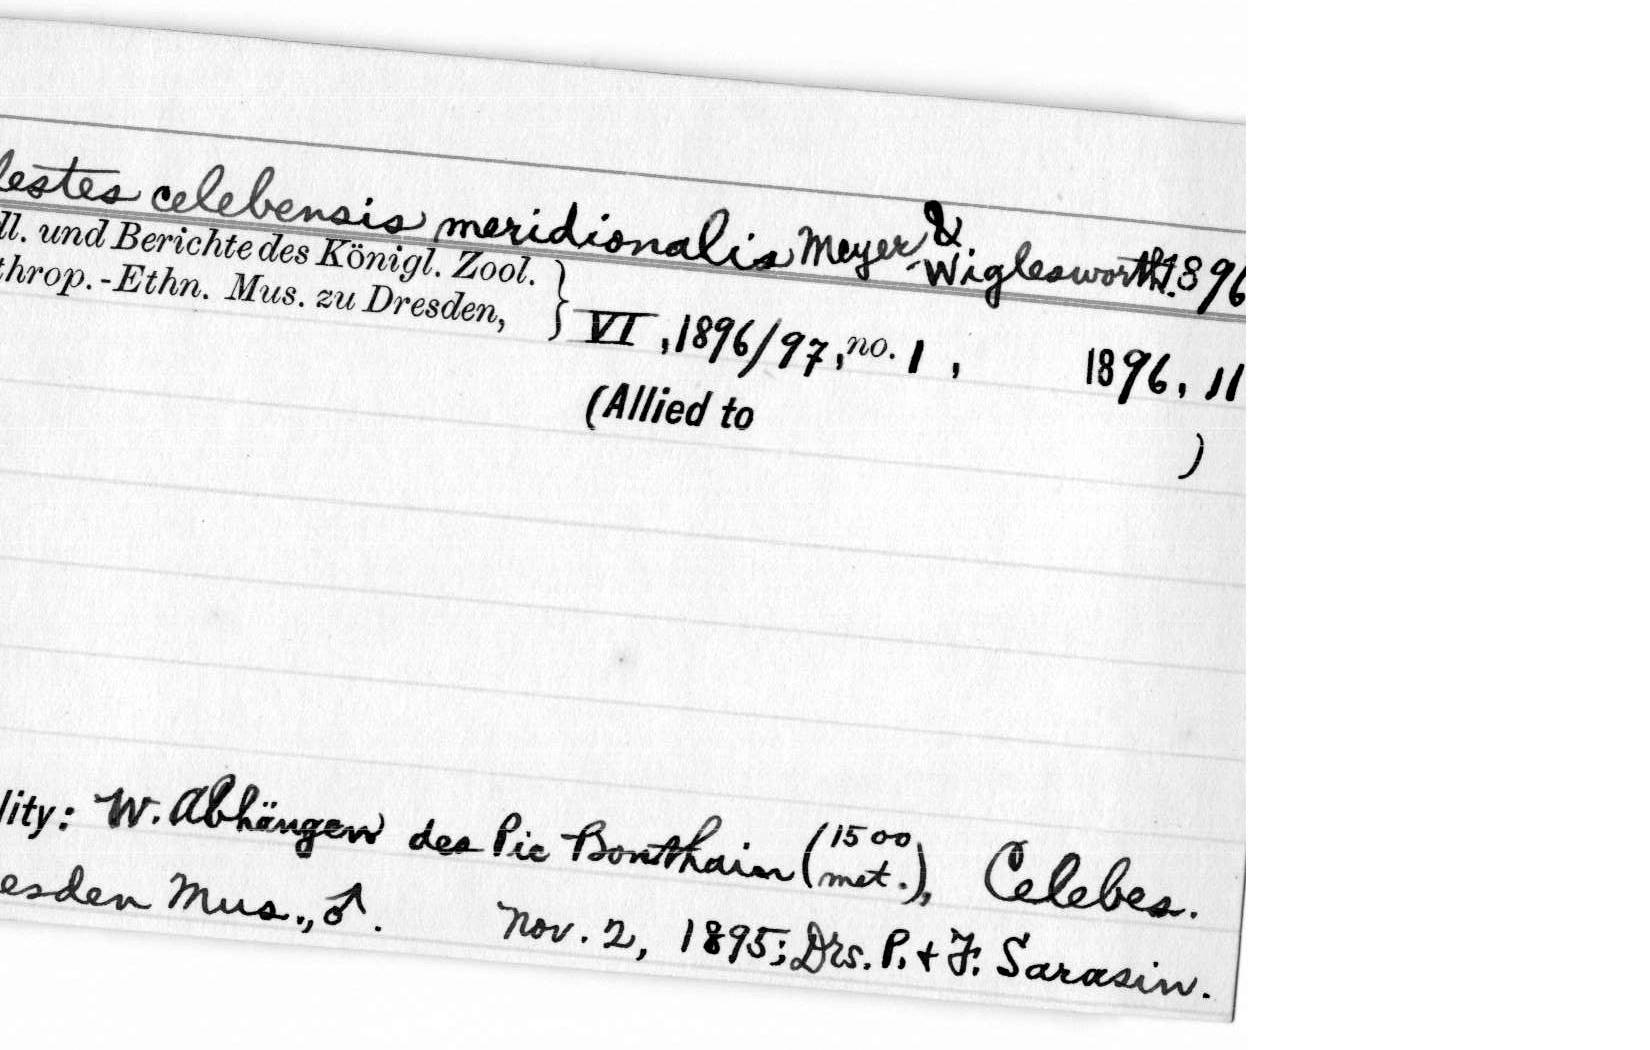 lestes celebensis meridionalis Meyer & Wiglesworth. 1896
ll. und Berichte des Königl. Zool.
throp.-Ethn. Mus. zu Dresden, } VI, 1896/97, no. 1, 1896, 11
(Allied to
)
lity: W. Abhängen des Pic Bonthain (1500 met.), Celebes.
esden Mus., ♂. Nov. 2, 1895; Drs. P. + F. Sarasin.